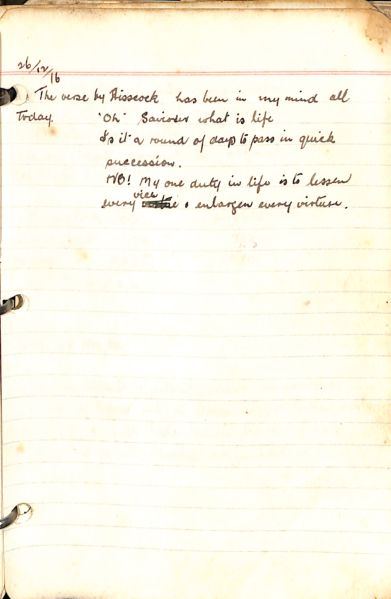 26/12/16
The verse by Hisscock has been in my mind all
today. "Oh" Saviour what is life
Is it a round of days to pass in quick
succession.
NO! My one duty in life is to lessen
vice
every & enlargen every virture.